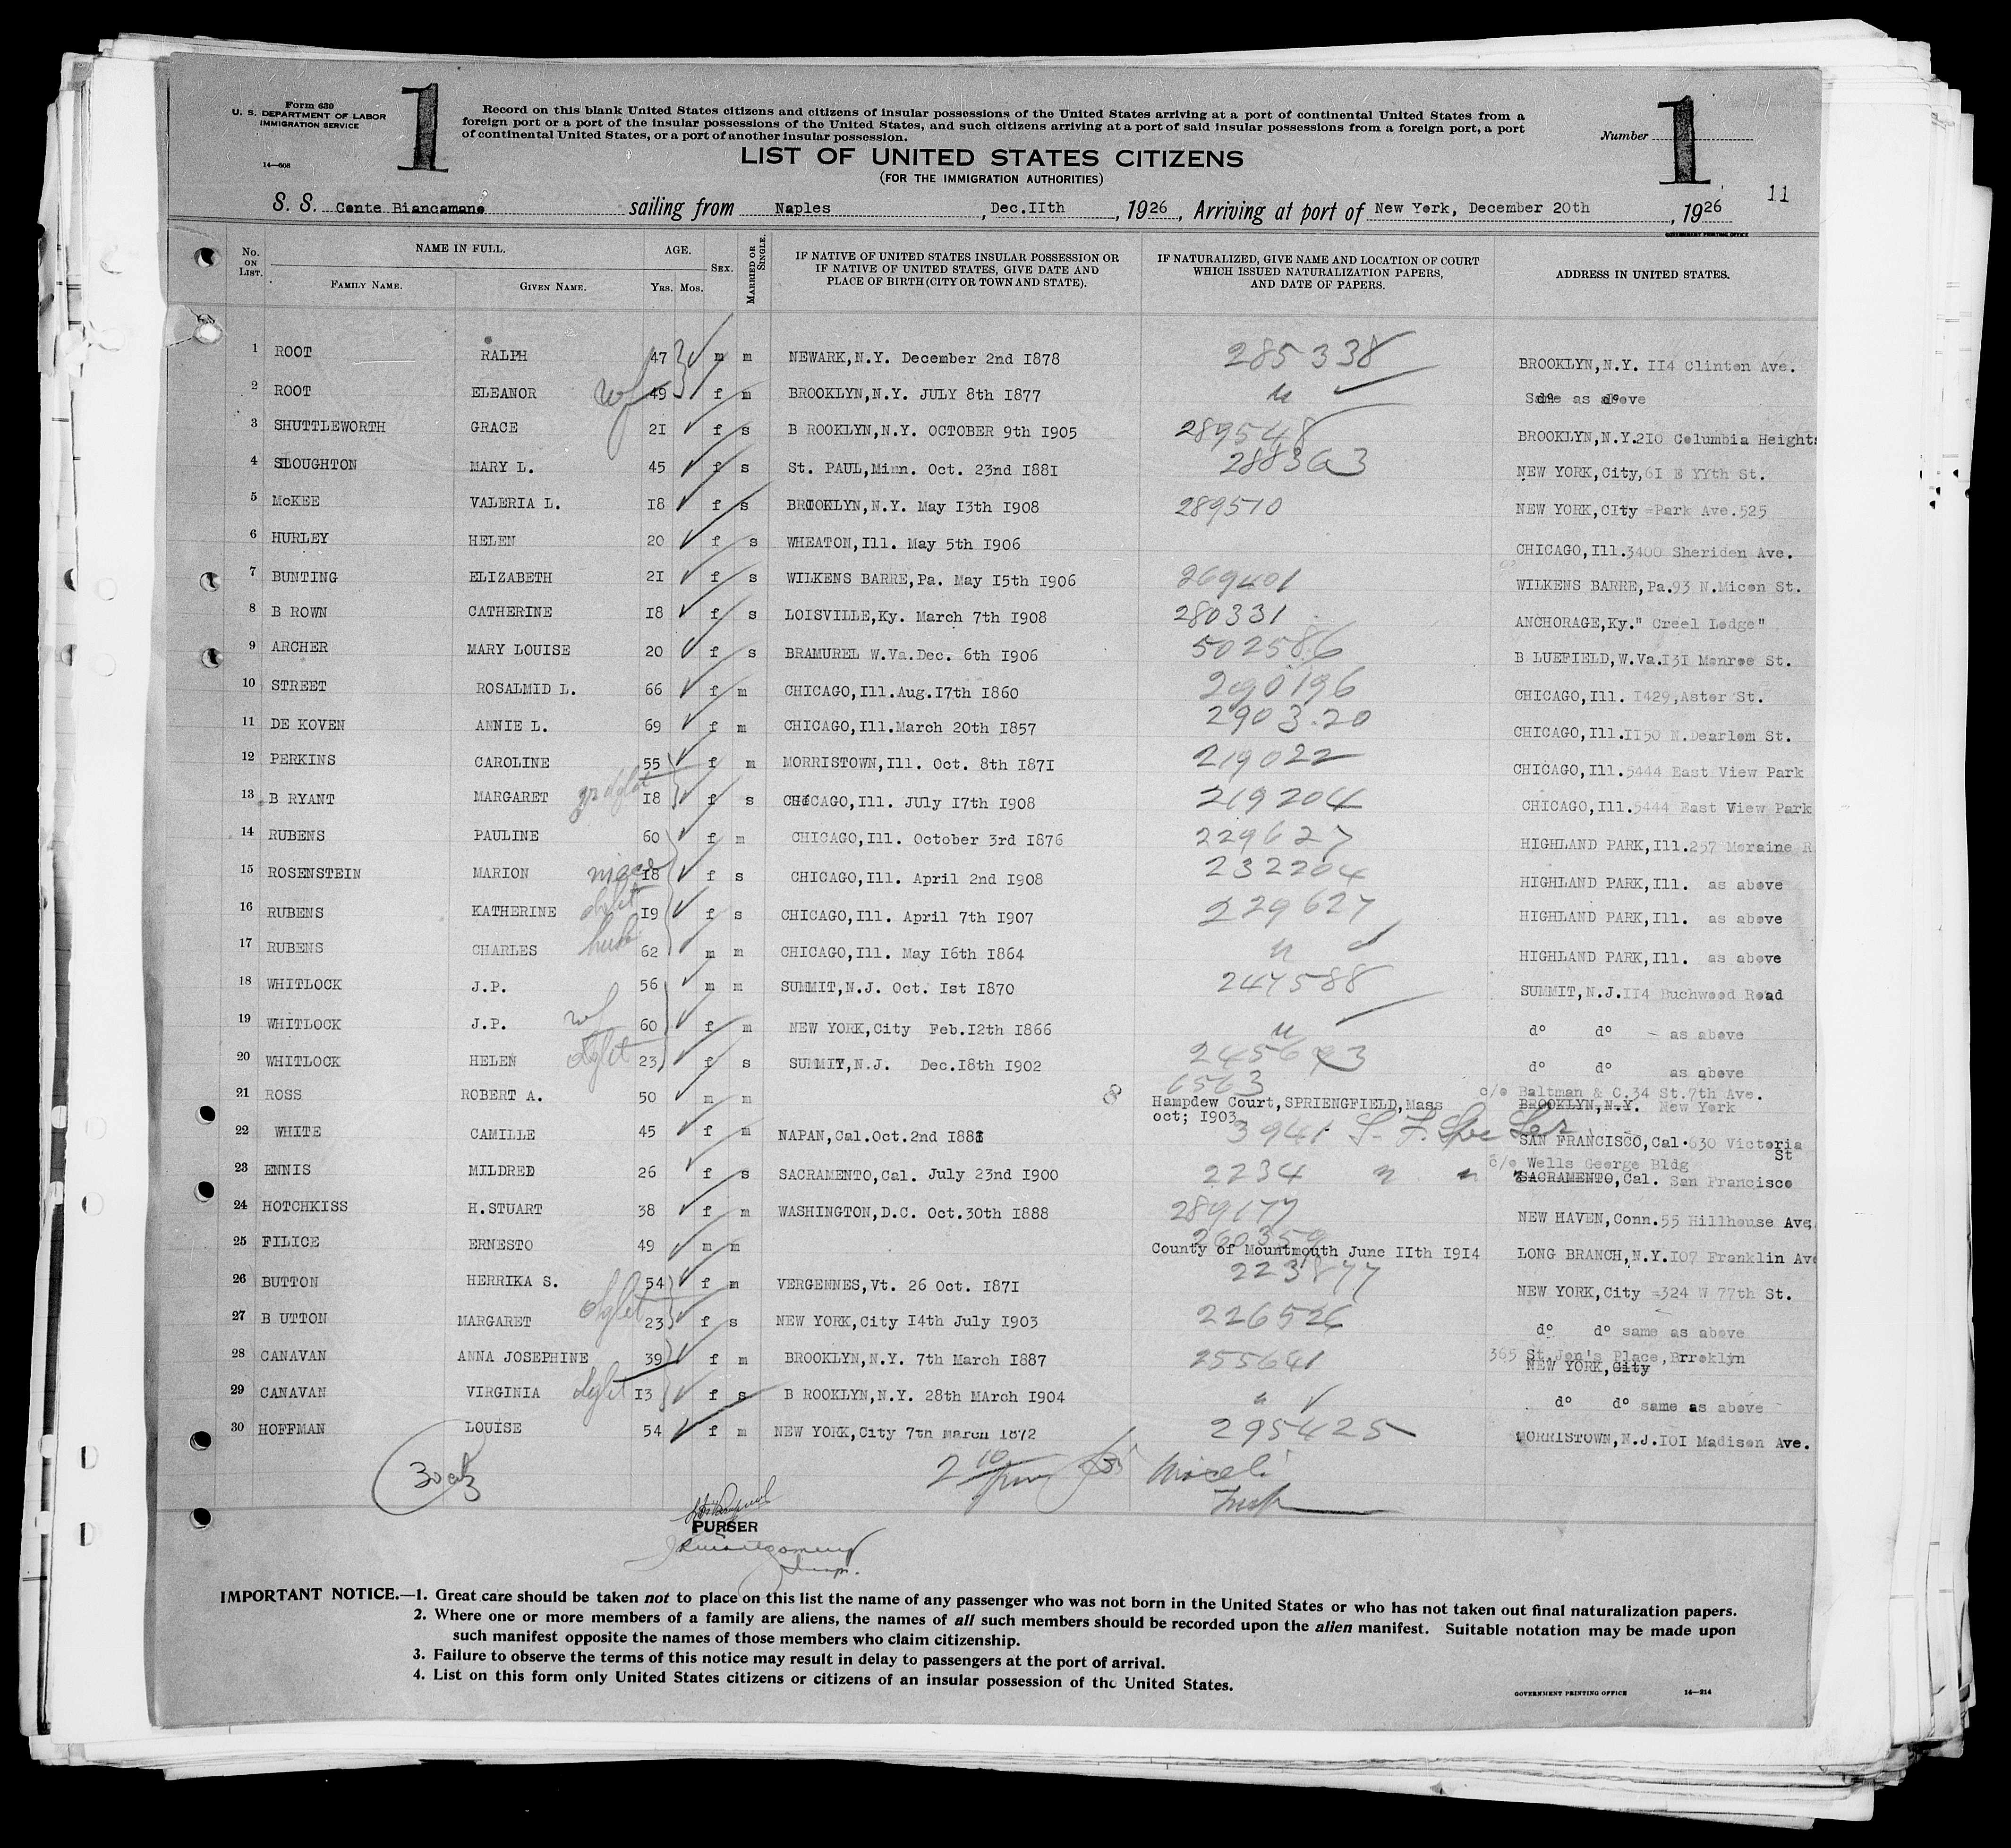 Form 630
U. S. DEPARTMENT OF LABOR
IMMIGRATION SERVICE
14—608
1
Record on this blank United States citizens and citizens of insular possessions of the United States arriving at a port of continental United States from a
foreign port or a port of the insular possessions of the United States, and such citizens arriving at a port of said insular possessions from a foreign port, a port
of continental United States, or a port of another insular possession.
Number 1
LIST OF UNITED STATES CITIZENS
(FOR THE IMMIGRATION AUTHORITIES)
11
S. S. Conte Biancamano sailing from Naples, Dec.IIth, 1926, Arriving at port of New York, December 20th, 1926
GOVERNMENT PRINTING OFFICE
No. ON LIST. NAME IN FULL. FAMILY NAME. GIVEN NAME. AGE. YRS. MOS. SEX. MARRIED OR SINGLE. IF NATIVE OF UNITED STATES INSULAR POSSESSION OR IF NATIVE OF UNITED STATES, GIVE DATE AND PLACE OF BIRTH (CITY OR TOWN AND STATE). IF NATURALIZED, GIVE NAME AND LOCATION OF COURT WHICH ISSUED NATURALIZATION PAPERS, AND DATE OF PAPERS. ADDRESS IN UNITED STATES.
1 ROOT RALPH 47 m m NEWARK,N.Y. December 2nd I878 285338 BROOKLYN,N.Y. II4 Clinton Ave.
2 ROOT ELEANOR wf 49 f m BROOKLYN,N.Y. JULY 8th I877 " Same as above
3 SHUTTLEWORTH GRACE 2I f s B ROOKLYN,N.Y. OCTOBER 9th I905 289548 BROOKLYN,N.Y.2I0 Columbia Heights
4 SLOUGHTON MARY L. 45 f s St. PAUL,Minn. Oct. 23nd I88I 288363 NEW YORK,City,6I E YYth St.
5 McKEE VALERIA L. I8 f s BROOKLYN,N.Y. May I3th I908 289510 NEW YORK,CIty =Park Ave.525
6 HURLEY HELEN 20 f s WHEATON,Ill. May 5th I906 CHICAGO,Ill.3400 Sheriden Ave.
7 BUNTING ELIZABETH 2I f s WILKENS BARRE,Pa. May I5th I906 269401 WILKENS BARRE,Pa.93 N.Micon St.
8 B ROWN CATHERINE I8 f s LOISVILLE,Ky. March 7th I908 280331 ANCHORAGE,Ky." Creel Lodge"
9 ARCHER MARY LOUISE 20 f s BRAMUREL W.Va.Dec. 6th I906 502586 B LUEFIELD,W.Va.I3I Monroe St.
10 STREET ROSALMID L. 66 f m CHICAGO,Ill.Aug.I7th I860 290196 CHICAGO,Ill. I429,Aster St.
11 DE KOVEN ANNIE L. 69 f m CHICAGO,Ill.March 20th I857 290320 CHICAGO,Ill.II50 N.Dearlom St.
12 PERKINS CAROLINE 55 f m MORRISTOWN,Ill. Oct. 8th I87I 219022 CHICAGO,Ill.5444 East View Park
13 B RYANT MARGARET I8 f s CHICAGO,Ill. JUly I7th I908 219204 CHICAGO,Ill.5444 East View Park
14 RUBENS PAULINE 60 f m CHICAGO,Ill. October 3rd I876 229627 HIGHLAND PARK,Ill.257 Moraine R
15 ROSENSTEIN MARION niece I8 f s CHICAGO,Ill. April 2nd I908 232204 HIGHLAND PARK,Ill. as above
16 RUBENS KATHERINE dght I9 f s CHICAGO,Ill. April 7th I907 229627 HIGHLAND PARK,Ill. as above
17 RUBENS CHARLES husb 62 m m CHICAGO,Ill. May I6th I864 " HIGHLAND PARK,Ill. as above
18 WHITLOCK J.P. 56 m m SUMMIT,N.J. Oct. Ist I870 247588 SUMMIT,N.J.II4 Buchwood Road
19 WHITLOCK J.P. wf 60 f m NEW YORK,City Feb.I2th I866 " d° d° - as above
20 WHITLOCK HELEN dght 23 f s SUMMIT,N.J. Dec.I8th I902 d° d° as above
21 ROSS ROBERT A. 50 m m 6563 Hampdew Court,SPRIENGFIELD,Mass oct; I903 c/o Baltman & C.34 St.7th Ave. BROOKLYN,N.Y. New York
22 WHITE CAMILLE 45 f m NAPAN,Cal.Oct.2nd I881 3941 SAN FRANCISCO,Cal.630 Victoria St
23 ENNIS MILDRED 26 f s SACRAMENTO,Cal. July 23nd I900 2234 " " c/o Wells George Bldg SACRAMENTO,Cal. San Francisco
24 HOTCHKISS H.STUART 38 f m WASHINGTON,D.C. Oct.30th I888 289177 NEW HAVEN,Conn.55 Hillhouse Ave
25 FILICE ERNESTO 49 m m 260359 County of Mountmouth June IIth I9I4 LONG BRANCH,N.Y.I07 Franklin Ave
26 BUTTON HERRIKA S. 54 f m VERGENNES,Vt. 26 Oct. I87I 223877 NEW YORK,City =324 W 77th St.
27 B UTTON MARGARET dght 23 f s NEW YORK,City I4th July I903 226526 d° d° same as above
28 CANAVAN ANNA JOSEPHINE 39 f m BROOKLYN,N.Y. 7th March I887 255641 365 St.Jon's Place,Brroklyn NEW YORK,City
29 CANAVAN VIRGINIA dght I3 f s B ROOKLYN,N.Y. 28th MArch I904 " d° d° same as above
30 HOFFMAN LOUISE 54 f m NEW YORK,City 7th March I872 295425 MORRISTOWN,N.J.I0I Madison Ave.
PURSER
Insp.
IMPORTANT NOTICE.—1. Great care should be taken not to place on this list the name of any passenger who was not born in the United States or who has not taken out final naturalization papers.
2. Where one or more members of a family are aliens, the names of all such members should be recorded upon the alien manifest. Suitable notation may be made upon
such manifest opposite the names of those members who claim citizenship.
3. Failure to observe the terms of this notice may result in delay to passengers at the port of arrival.
4. List on this form only United States citizens or citizens of an insular possession of the United States.
GOVERNMENT PRINTING OFFICE 14—214